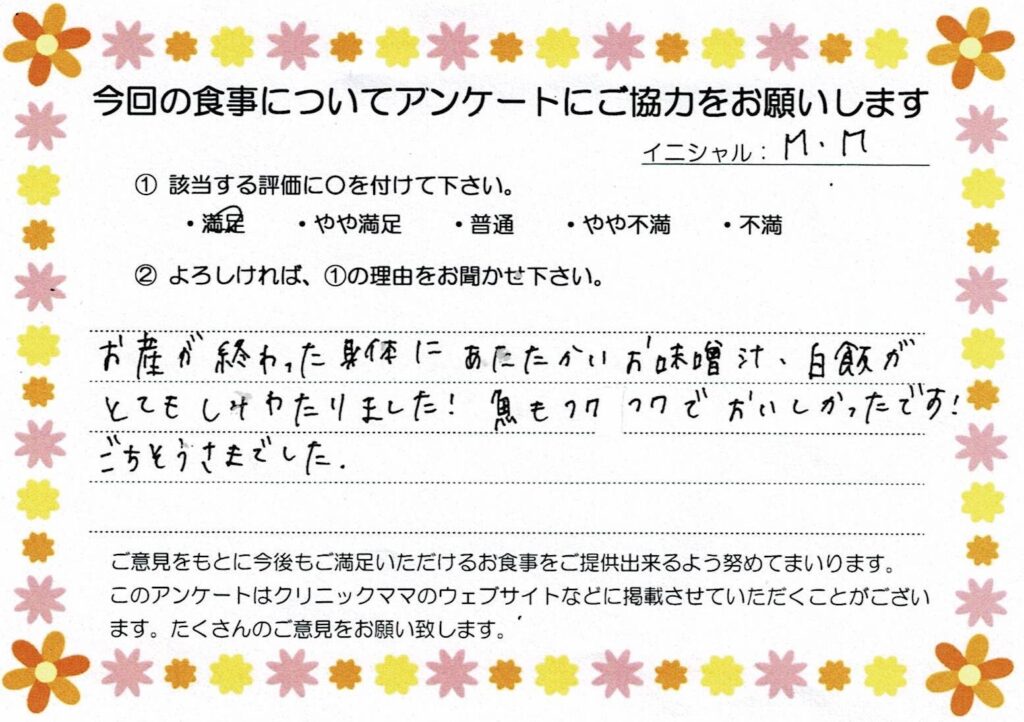 今回の食事についてアンケートにご協力をお願いします
イニシャル： M.M
① 該当する評価に〇を付けて下さい。
・満足 ・やや満足 ・普通 ・やや不満 ・不満
② よろしければ、①の理由をお聞かせ下さい。
お産が終わった身体に あたたかいお味噌汁、白飯が
とてもしみわたりました! 魚もフワフワでおいしかったです!
ごちそうさまでした.
ご意見をもとに今後もご満足いただけるお食事をご提供出来るよう努めてまいります。
このアンケートはクリニックママのウェブサイトなどに掲載させていただくことがござい
ます。たくさんのご意見をお願い致します。